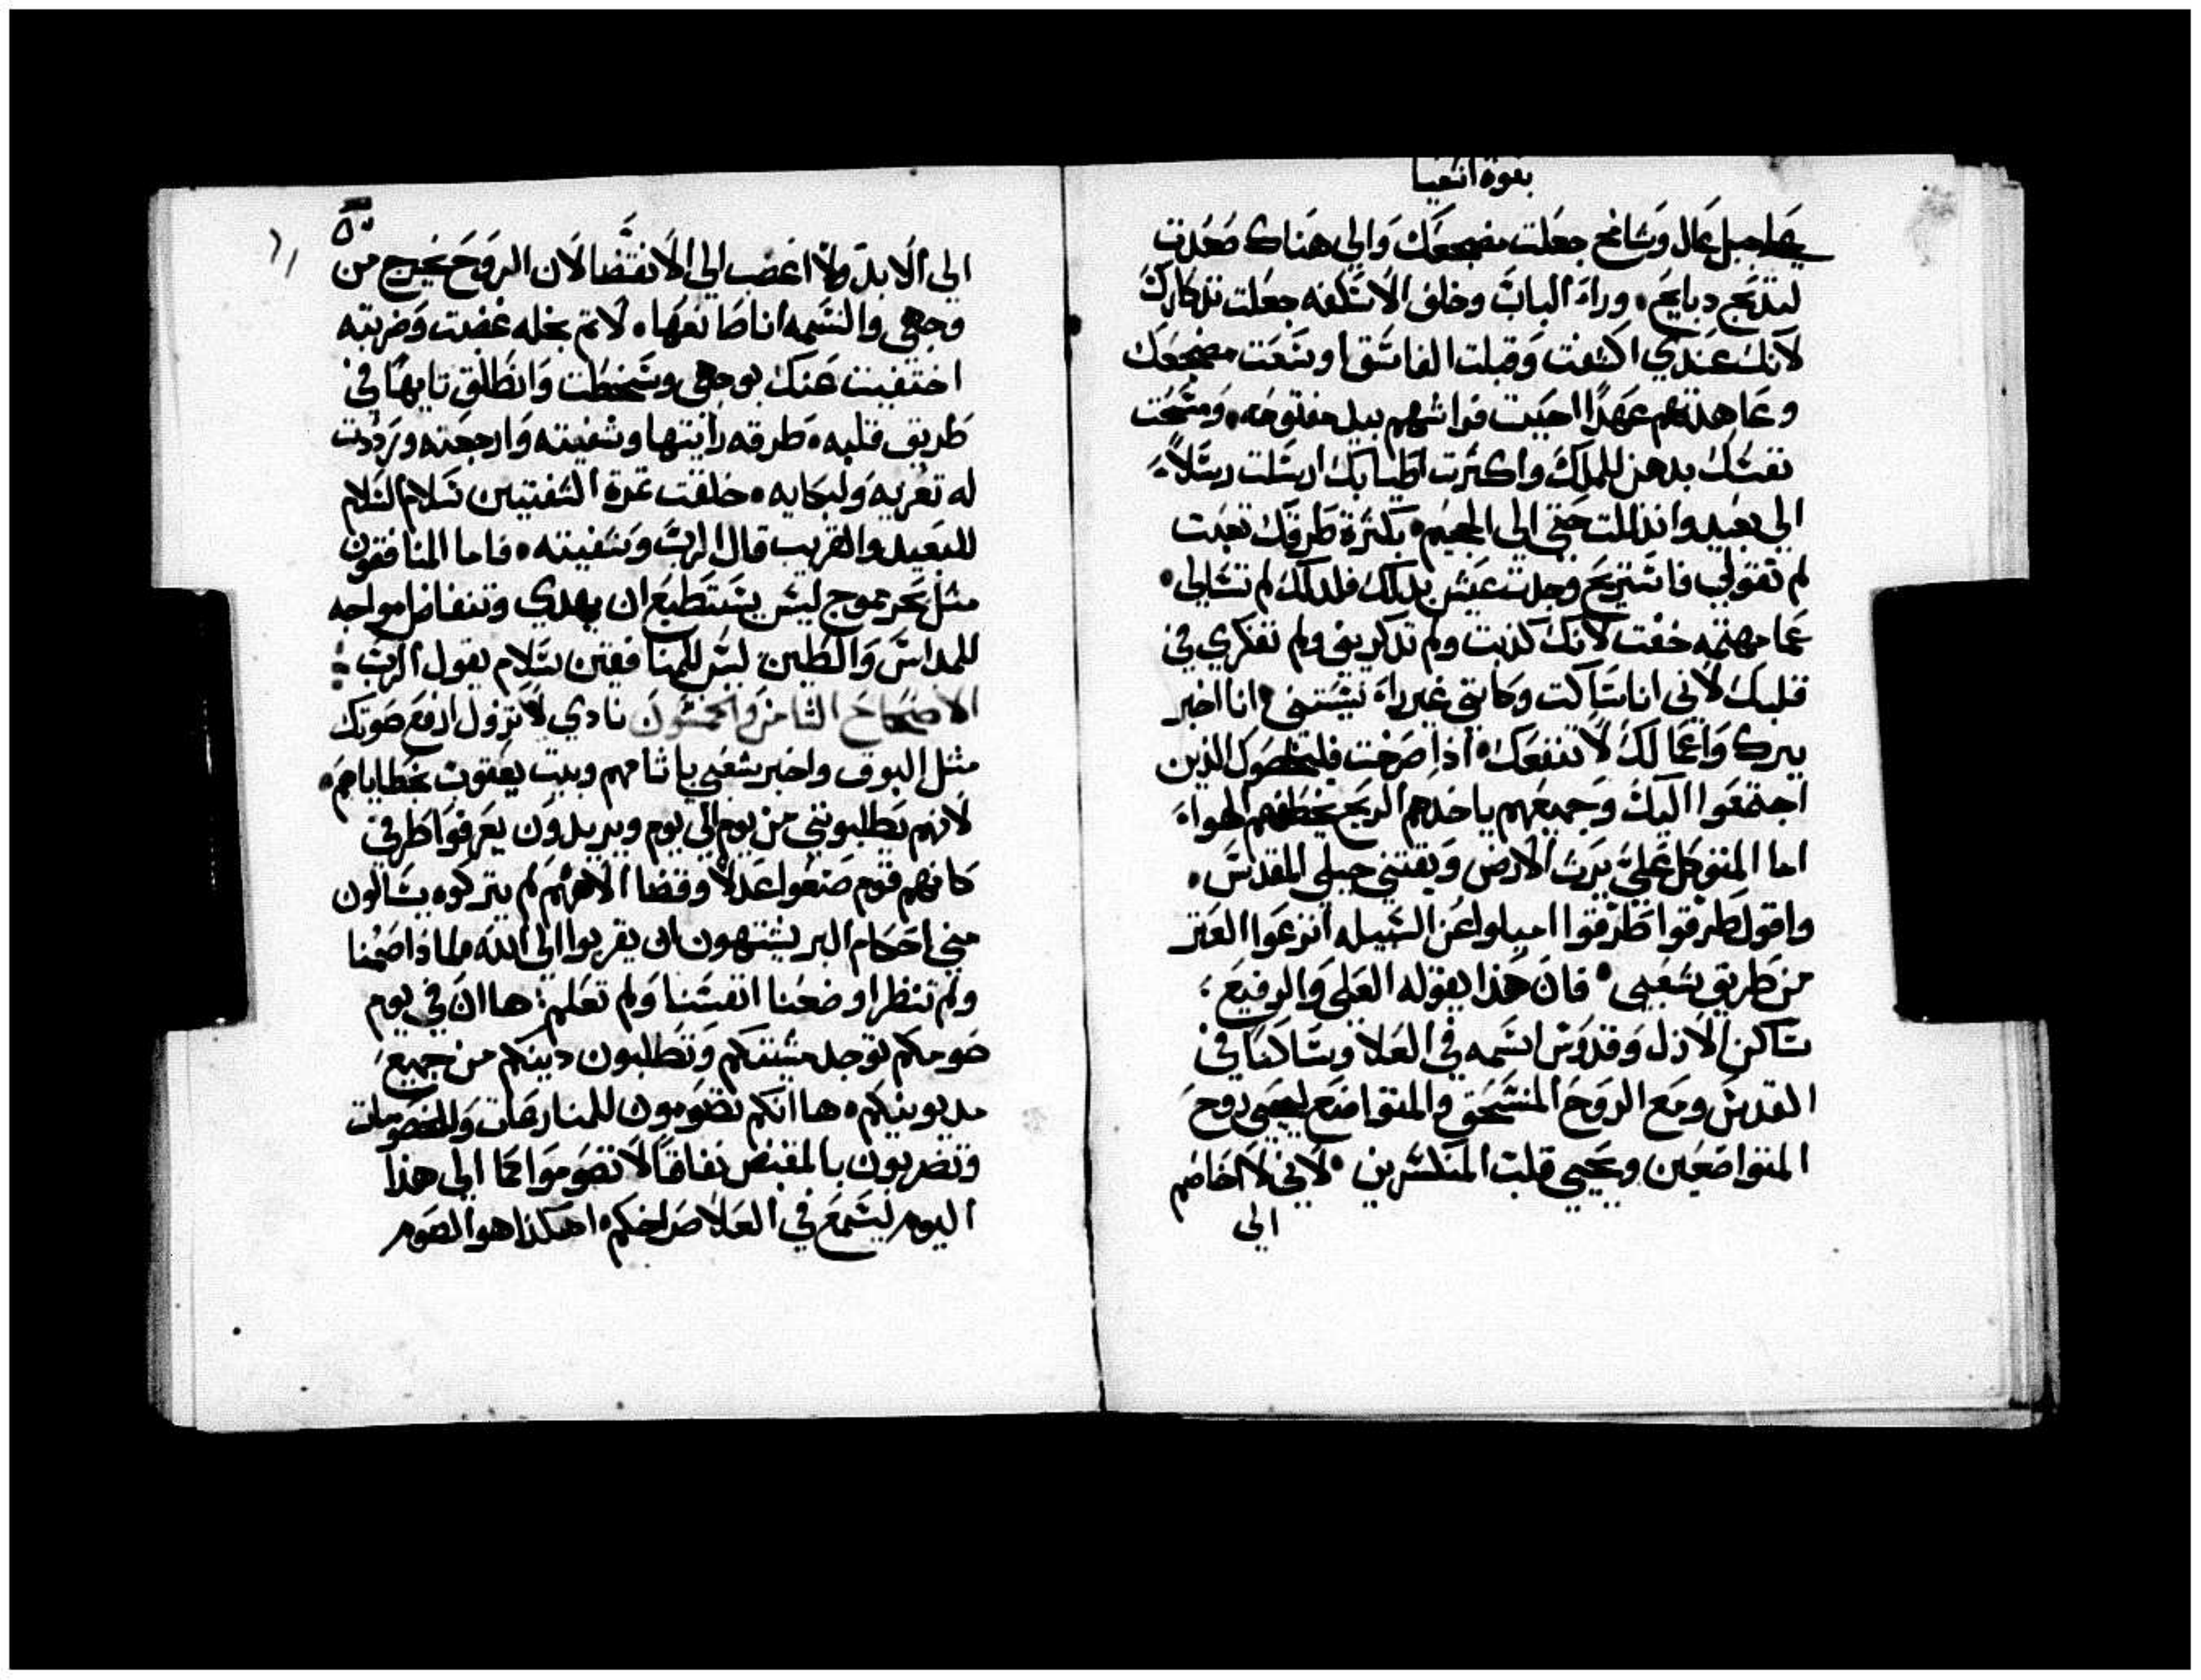 نبوة اشعيا
على جبل عال وشامخ جعلت مضجعك والي هناك صعدت
لتذبحي دبايح، وراء الباب وخلف الاسكفه جعلت تذكارك
لانك عندي اكشفت وقبلت الفاسق اوسعت مضجعك
وعاهدتهم عهدًا احببت فراشهم بيد مفتوحه، ومسحت
نفسك بدهن للملك واكثرت اطيابك ارسلت رسلاً
الي بعيد واندللت حتي الي الجحيم، بكثرة طرقك تعبت
لم تقولي فاستريح وجدت عيش يدك فلدلك لم تسالي،
عما مهتمه خفت لانك كذبت ولم تدكريني ولم تفكري في
قلبك لاني انا ساكت وكاني غير راء نسيتني، انا اخبر
ببرك واعمالك لا تنفعك، اذا صرخت فليخلصوك الذين
اجتمعوا اليك وجميعهم ياخدهم الريح يخطفهم الهواء
اما المتوكل علي يرت الارض ويقتني جبلي المقدس،
واقول طرقوا طرقوا اميلوا عن السبيله انزعوا العتر
من طريق شعبي، فان هذا يقوله العلي والرفيع،
ساكن الازل وقدوس اسمه في العلا وساكنا في
القدس ومع الروح المنسحق والمتواضع ليحيي روح
المتواضعين ويحيي قلب المنكسرين، لاني لا اخاصم
الي
الي الابد ولا اغضب الي الانقضا لان الروح يخرج من
وجهي والنسمه انا صانعها، لاتم بخله غضبت وضربته
اختفيت عنك بوجهي وسخطت وانطلق تايها في
طريق قلبه، طرقه رايتها وشفيته وارجعته ورددت
له تعزيه ولبكايه، خلقت تمرة الشفتين سلام السلام
للبعيد والقريب قال الرب وشفيته، فاما المنافقون
مثل بحر يموج ليس يستطيع ان يهدي وتنفاض امواجه
للمداس والطين ليس للمنافقين سلام يقول الرب:
الاصحاح الثامن والخمسون نادي لا تزول ارفع صوتك
مثل البوق واخبر شعبي باثامهم وبيت يعقوب بخطاياهم،
لانهم يطلبوني من يوم الي يوم ويريدون يعرفوا طرقي
كانهم قوم صنعوا عدلاً وقضا الاههم لم يتركوه يسالون
مني احكام البر يشتهون ان يقربوا الي الله لماذا صمنا
ولم تنظر اوضعنا انفسنا ولم تعلم: ها ان في يوم
صومكم توجد مشيتكم وتطلبون دينكم من جميع
مديونيكم، ها انكم تصومون للمنارعات والخصومات
وتضربون بالمقبض نفاقًا لا تصوموا كما الي هذا
اليوم ليسمع في العلا صراخكم، اهكذا هو الصوم